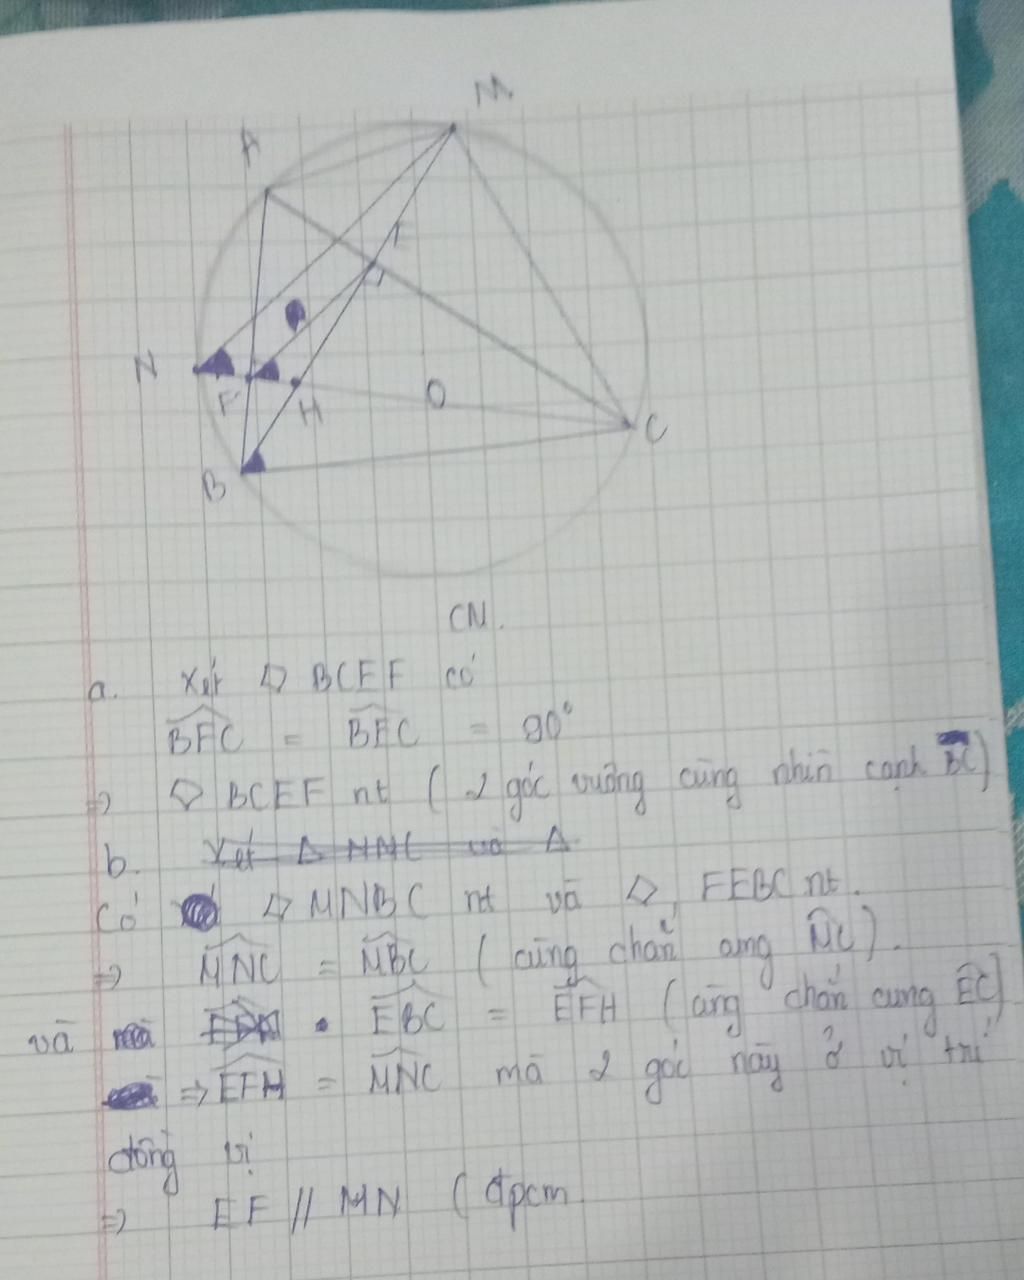 M
A
E
N
F
H
O
C
B
CM.
a. Xét ▱ BCEF có
BFC = BEC = 90°
=> ▱ BCEF nt ( 2 góc vuông cùng nhìn cạnh BC)
b. Xét Δ HNC và Δ
Có ▱ MNBC nt và ▱ FEBC nt.
=> MNC = MBC ( cùng chắn cung MC).
và EBC = EFH ( cùng chắn cung EC)
=> EFH = MNC mà 2 góc này ở vị trí
đồng vị
=> EF // MN ( đpcm